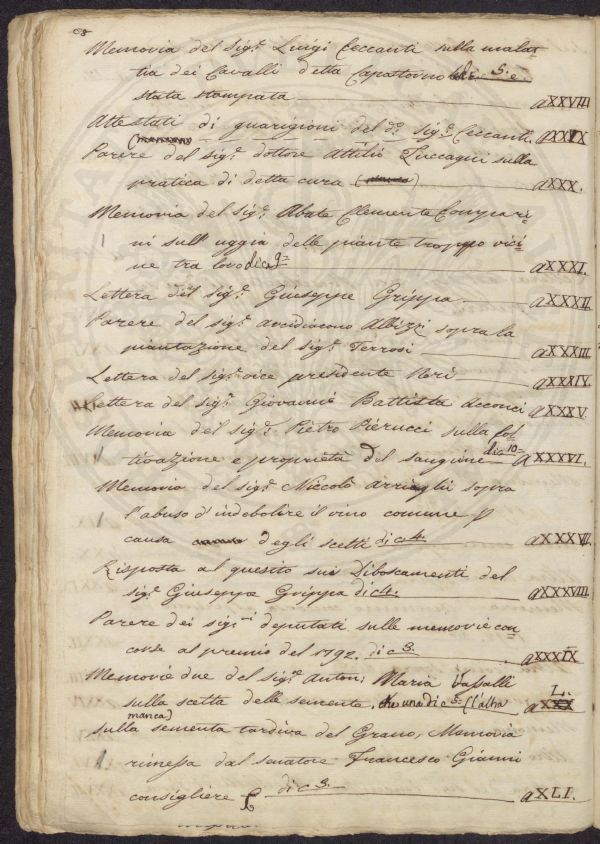 Memoria del sig.r Luigi Ceccanti sulla malat-
tia dei Cavalli detta Capostorno di c. 5. e
stata stampata aXXVIII
Attestati di guarigioni del d.o sig.r Ceccanti. aXXIX
Parere del sig.r dottore Attilio Zuccagni sulla
pratica di detta cura aXXX.
Memoria del sig.r Abate Clemente Compari-
ni sull' uggia delle piante troppo vici-
ne tra loro di c. 9 aXXXI.
Lettera del sig.r Giuseppe Grippa aXXXII
Parere del sig.r arcidiacono Albizzi sopra la
piantazione del sig.r Terrosi aXXXIII
Lettera del sig.r vice presidente Neri aXXXIV.
Lettera del sig.r Giovanni Battista Acconci aXXXV.
Memoria del sig.r Pietro Pierucci sulla col-
tivazione e proprietà del sangine di c. 10 aXXXVI.
Memoria del sig.r Niccolò Arrighi sopra
l'abuso d'indebolire il vino comune p
causa degli scelti di c. 4. aXXXVII.
Risposta al quesito sui Diboscamenti del
sig.r Giuseppe Grippa di c. aXXXVIII
Parere dei sig.ri deputati sulle memorie con-
corse al premio del 1792. di c. 3. aXXXIX
Memorie due del sig.r Anton: Maria Vassalli
sulla scelta delle sementa, una di c. 5 (l'altra
manca) aXL.
sulla sementa tardiva del Grano, Memoria
rimessa dal senatore Francesco Gianni
consigliere di c. 3. aXLI.